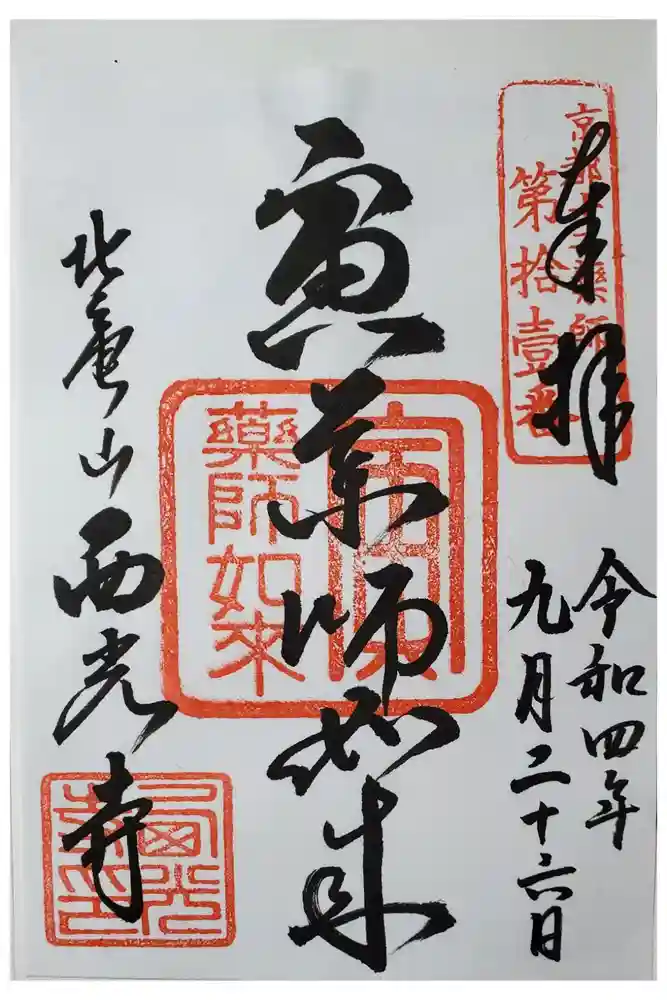 奉拝
京都十二薬師
第拾壹番
令和四年
九月二十六日
寅薬師如来
寅
藥師如来
西光寺
西光
寺印